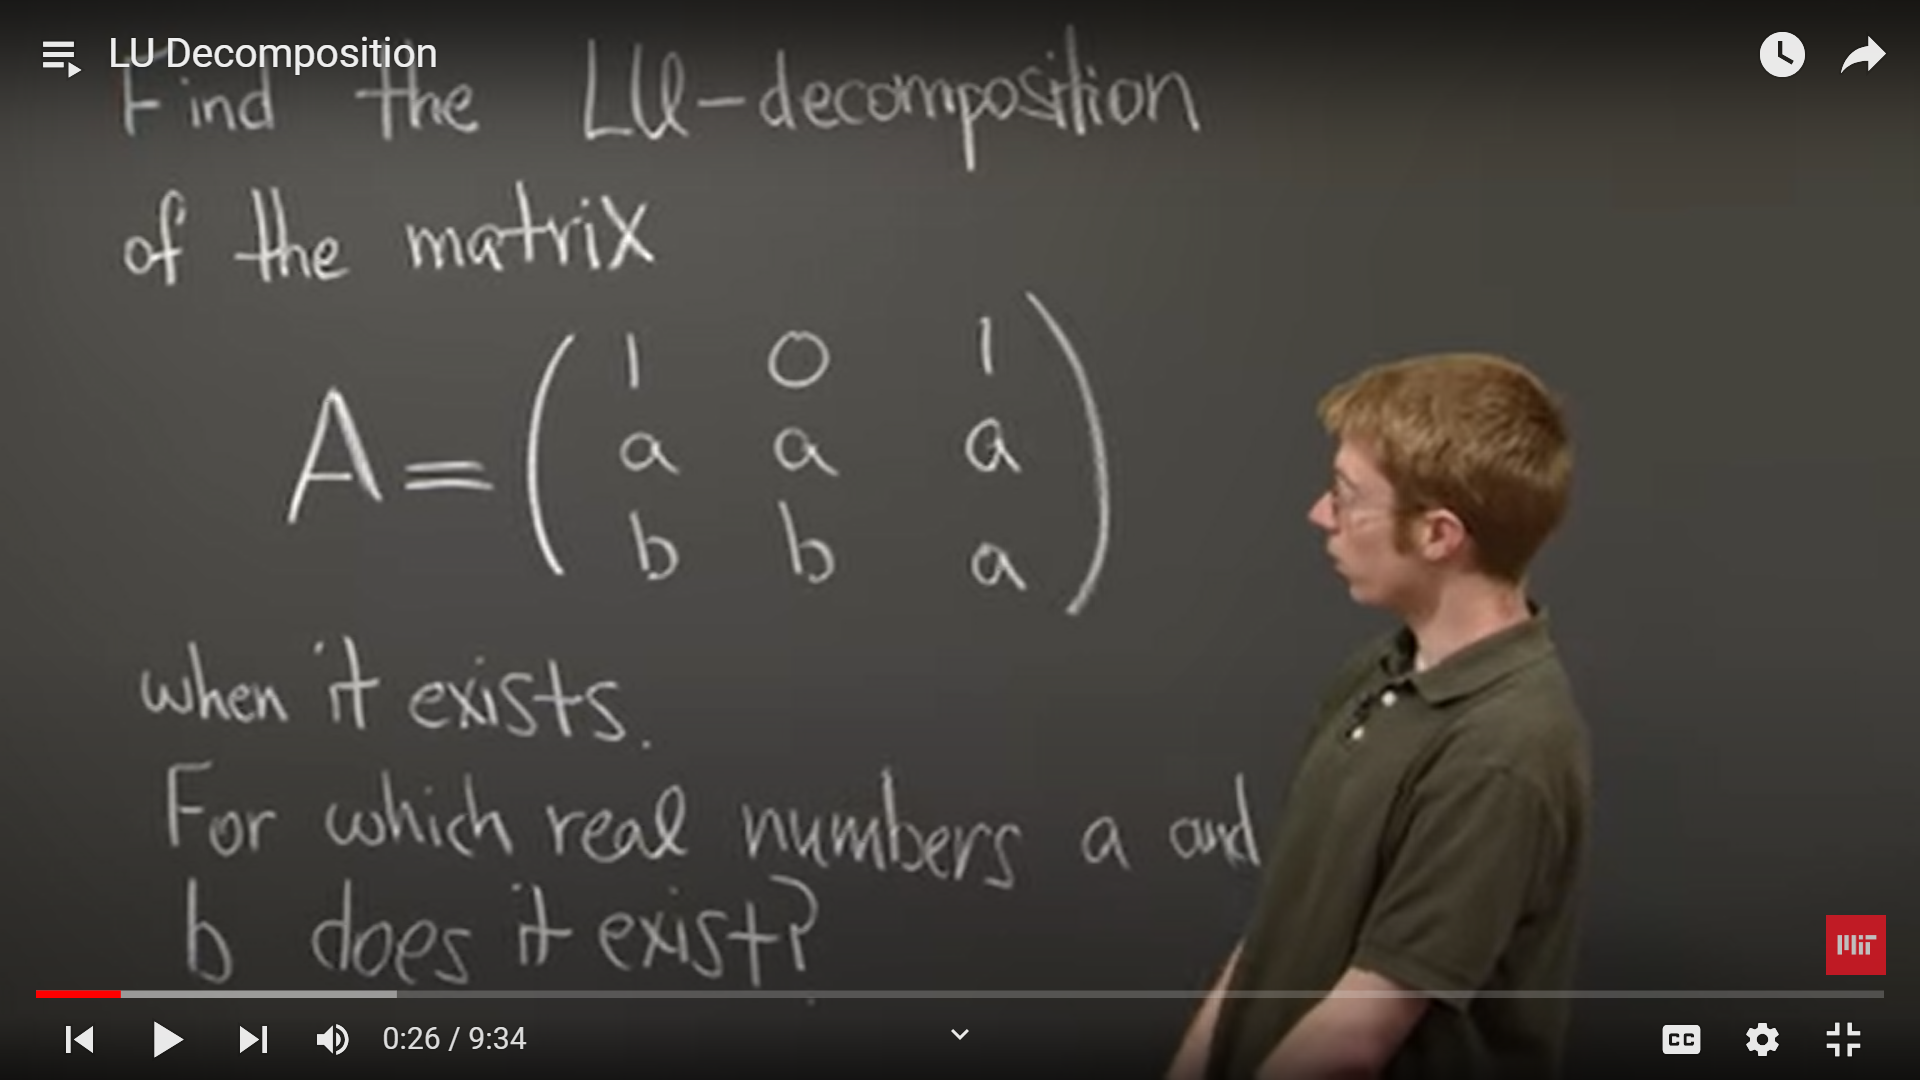 LU Decomposition
Find the LU-decomposition
of the matrix
A = ( 1 0 1
a a a
b b a )
when it exists.
For which real numbers a and
b does it exist?
MIT
0:26 / 9:34
CC